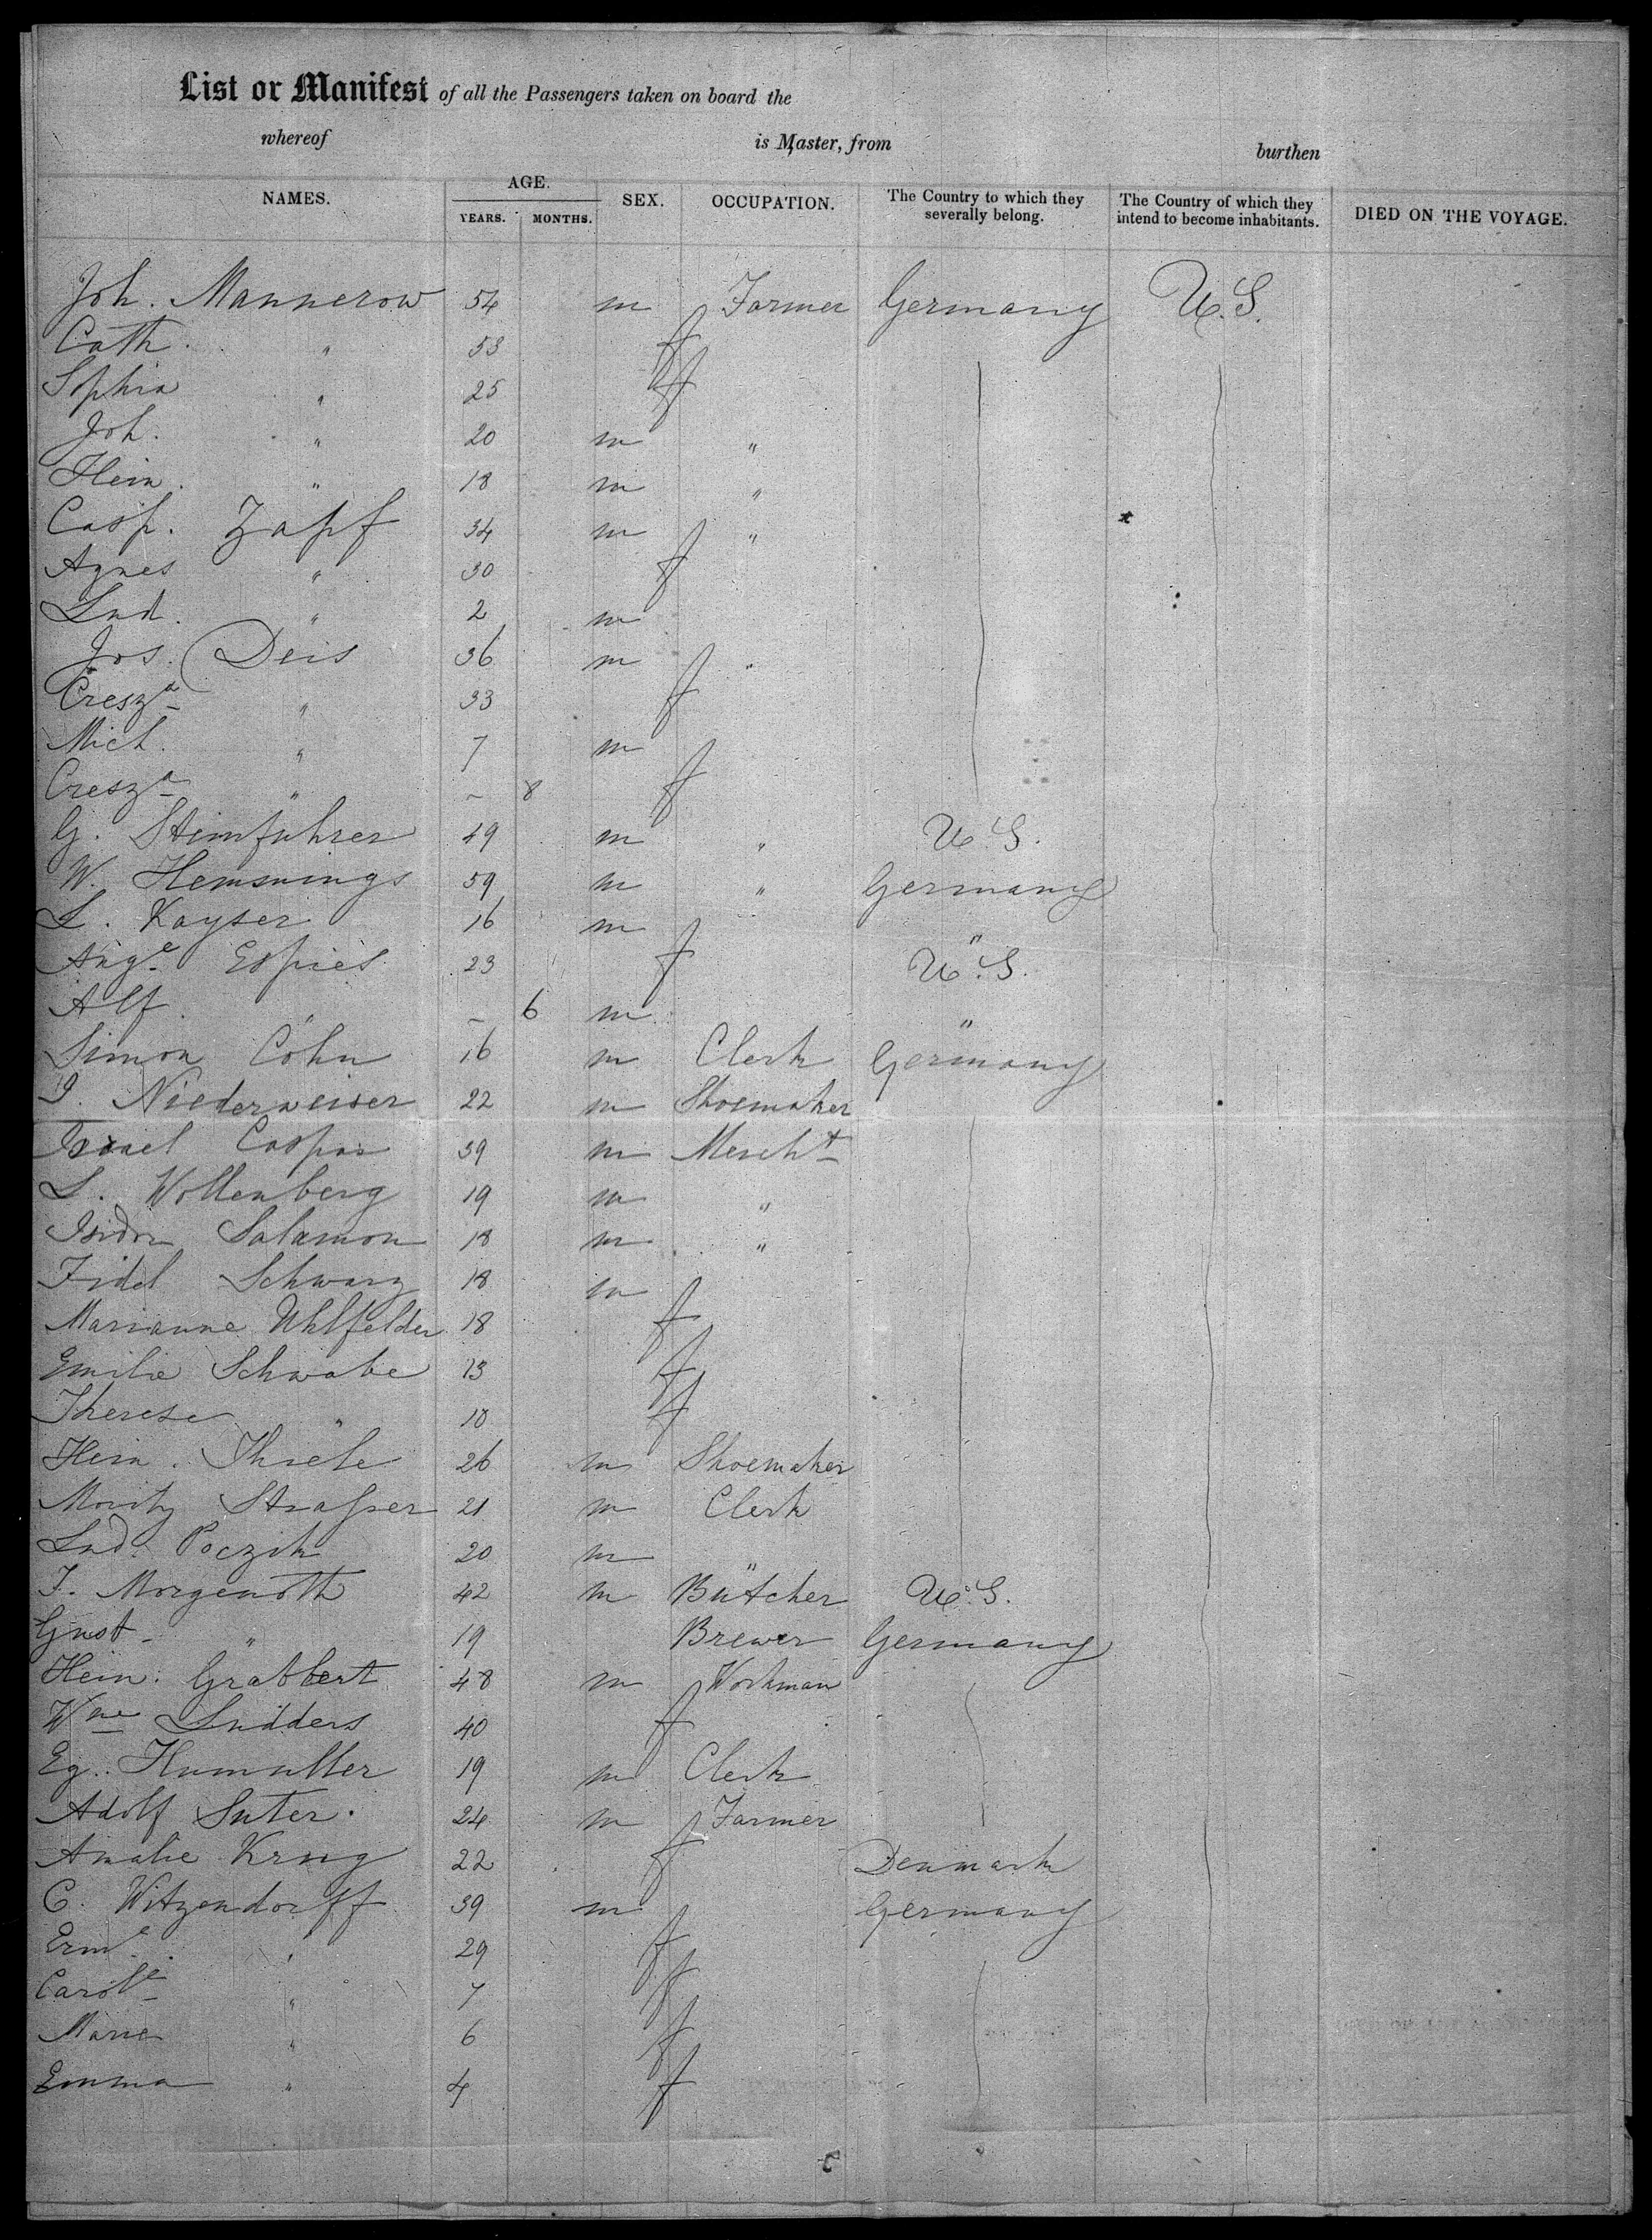 List or Manifest of all the Passengers taken on board the
whereof is Master, from burthen
NAMES. AGE. SEX. OCCUPATION. The Country to which they severally belong. The Country of which they intend to become inhabitants. DIED ON THE VOYAGE.
YEARS. MONTHS.
Joh. Mannerow 54 m Farmer Germany U.S.
Cath. " 53 f
Sophia " 25 f
Joh. " 20 m "
Hein. " 18 m "
Casp. Zapf 34 m "
Agnes " 30 f
Lud. " 2 m
Jos. Deis 36 m "
Cresza " 33 f
Mich. " 7 m
Cresza " – 8 f
G. Steinfuhrer 49 m " U.S.
W. Hemmings 59 m " Germany
L. Kayser 16 m "
Auge Espies 23 f U.S.
Alf. " – 6 m "
Simon Cohn 16 m Clerk Germany
J. Niederweiser 22 m Shoemaker
Israel Caspar 39 m Mercht
L. Wollenberg 19 m "
Isidor Salamon 18 m "
Fidel Schwarz 18 m
Marianne Uhlfelder 18 f
Emilie Schwabe 13 f
Therese " 10 f
Hein. Thiele 26 m Shoemaker
Moritz Strasser 21 m Clerk
Lud. Poczik 20 m "
J. Morgenroth 42 m Butcher U.S.
Gust. " 19 Brewer Germany
Hein. Grabbert 48 m Workman
Wme Ludders 40 f
Eg. Humuller 19 m Clerk
Adolf Suter. 24 m Farmer
Amalie Krug 22 f Denmark
C. Witzendorff 39 m Germany
Erme " 29 f
Carole " 7 f
Marie " 6 f
Emma " 4 f